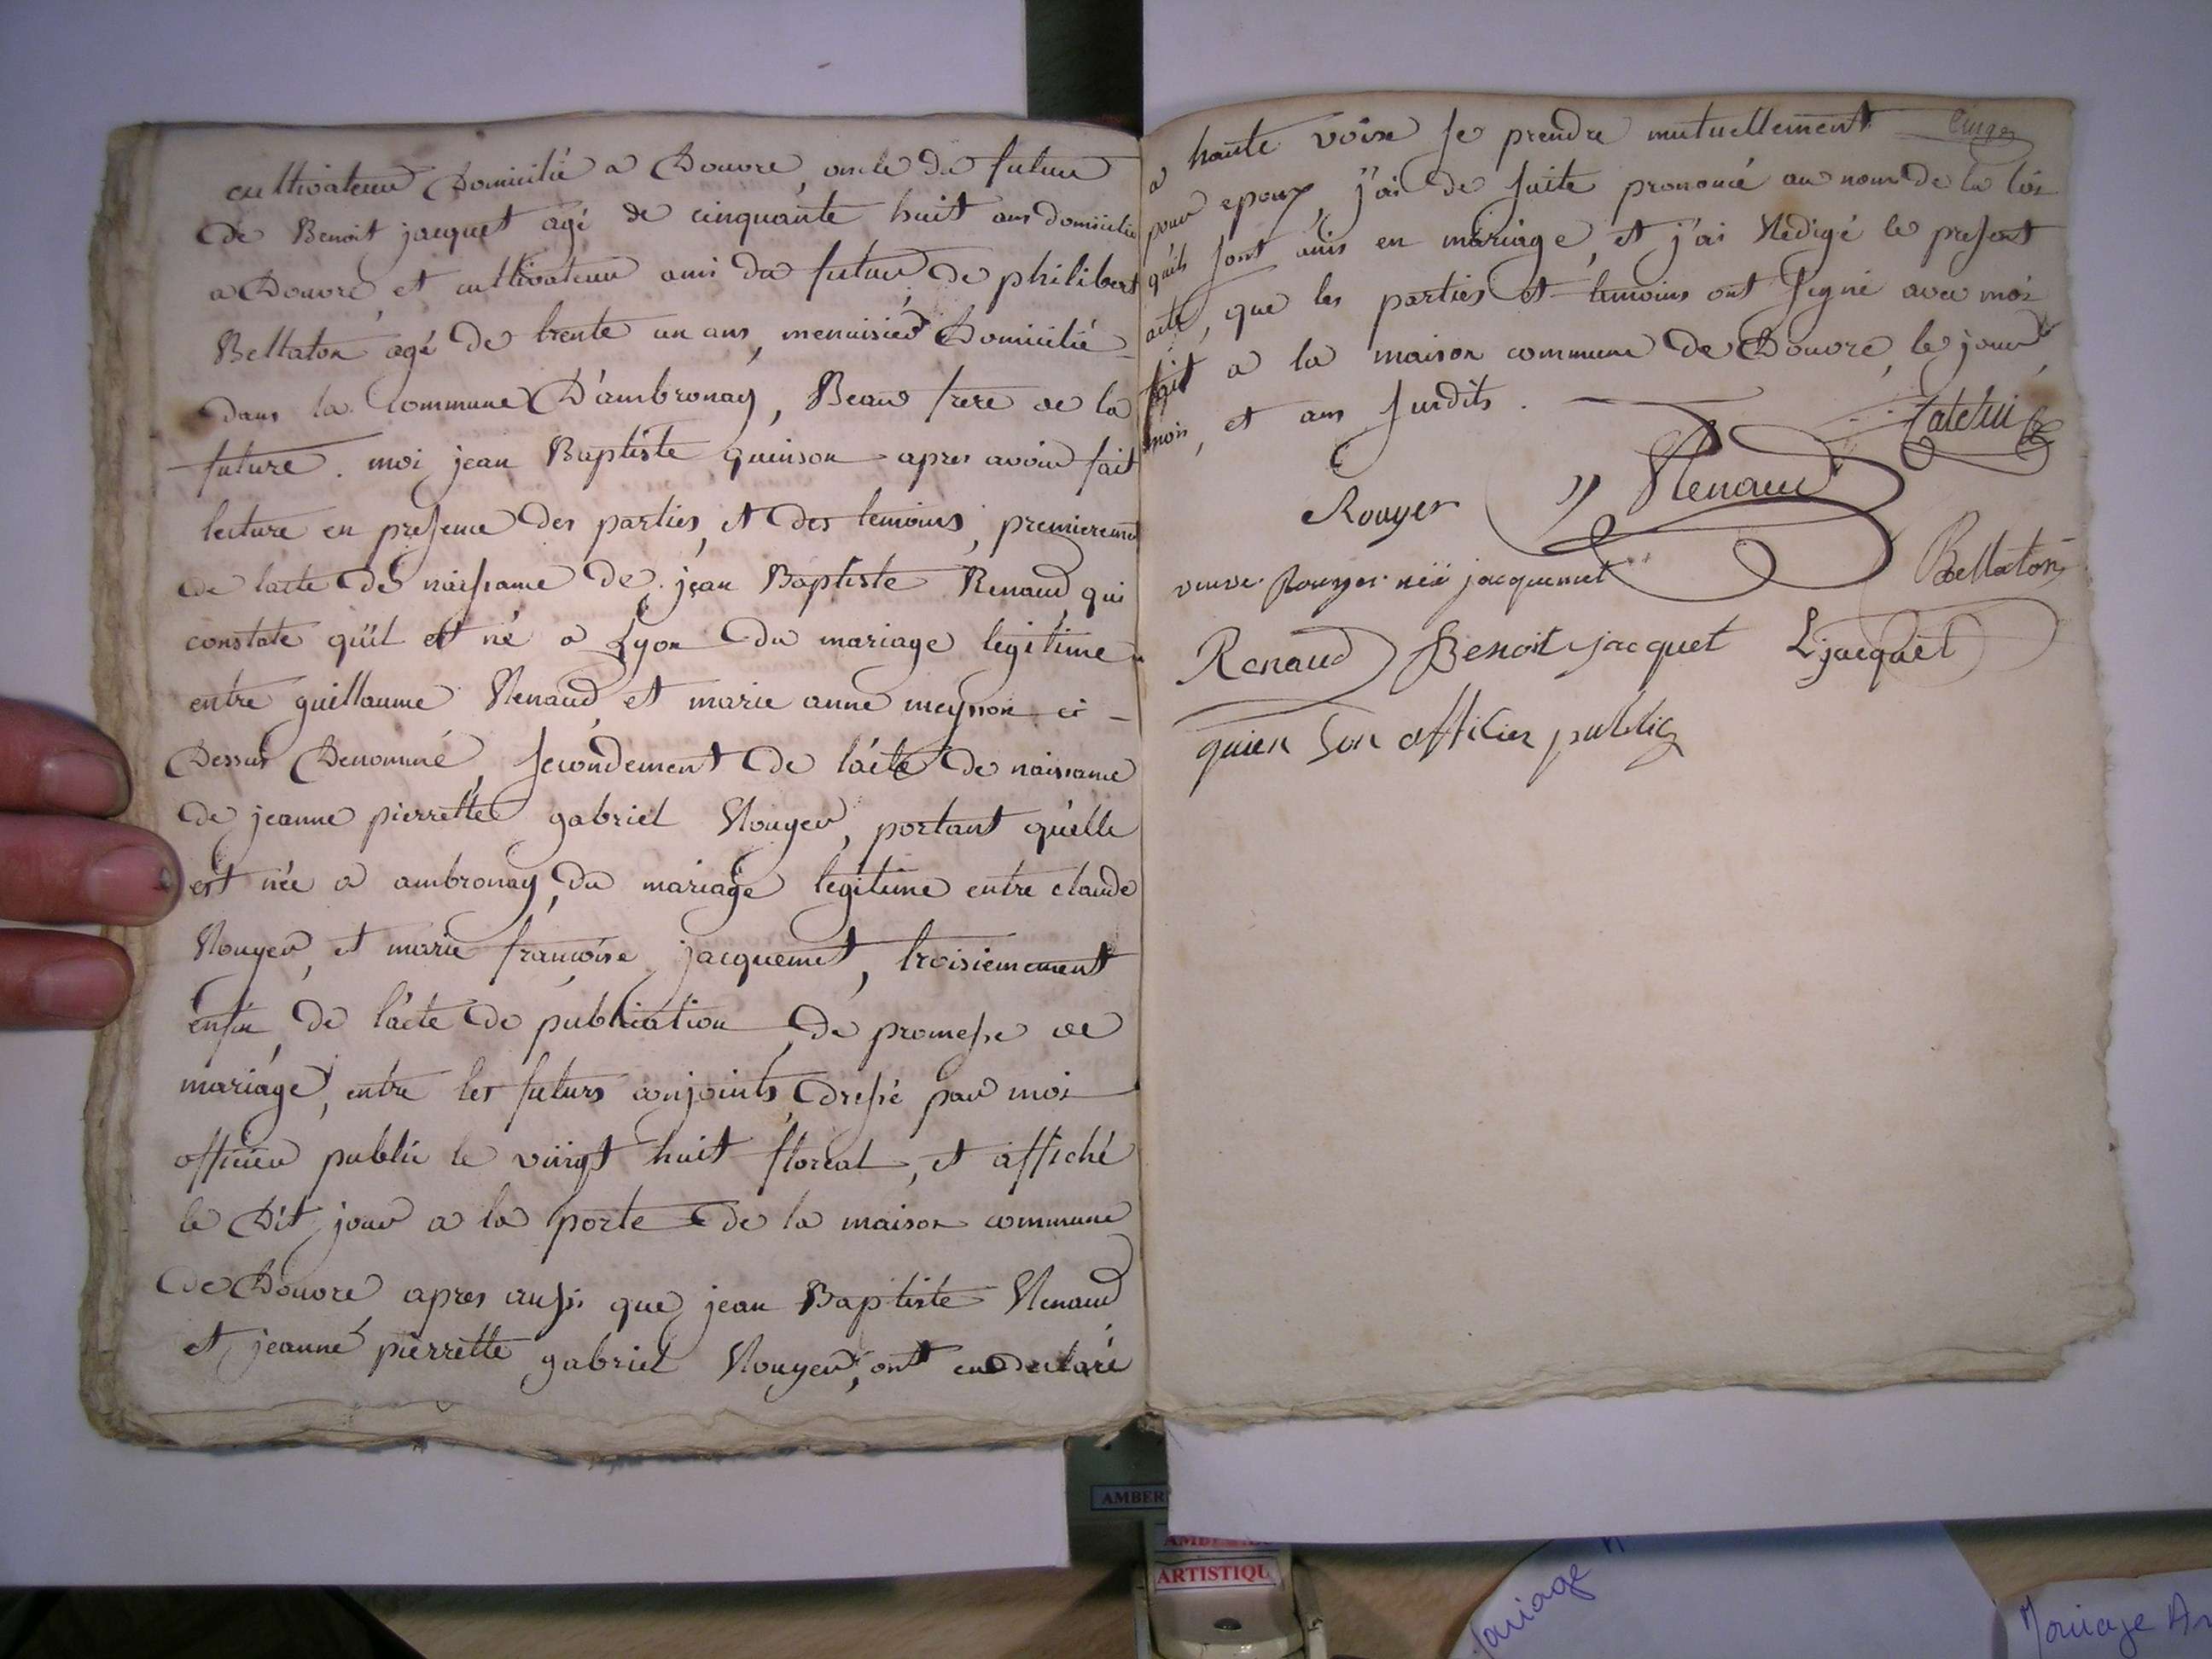 cultivateur domicilié a Douvre, oncle du futur
de Benoit jacquet agé de cinquante huit ans domicilié
a Douvre, et cultivateur ami du futur, de philibert
Bellaton agé de trente un ans, menuisier domicilié
dans la commune d'ambronay, Beau frere de la
future. moi jean Baptiste quinson apres avoir fait
lecture en presence des parties, et des temoins, premierement
de lacte de naissance de jean Baptiste Renaud qui
constate qu'il est né a Lyon du mariage legitime
entre guillaume Renaud, et marie anne meynon ci-
dessus denommé, secondement de l'acte de naissance
de jeanne pierrette gabriel Rouyer, portant qu'elle
est née a ambronay, du mariage legitime entre claude
Rouyer, et marie françoise jacquemet, troisiemement
enfin, de l'acte de publication, de promesse de
mariage, entre les futurs conjoints, dressé par moi
officier public le vingt huit floreal, et affiché
le dit jour a la porte de la maison commune
de Douvre, apres aussi que jean Baptiste Renaud
et jeanne pierrette gabriel Rouyer, ont eu declaré
a haute voix se prendre mutuellement
pour epoux, j'ai de suite prononcé au nom de la loi
qu'ils sont unis en mariage, et j'ai redigé le present
acte, que les parties et temoins ont signé avec moi
fait a la maison commune de Douvre, le jour,
mois, et an susdits.
Rouyer Renaud
veuve Rouyer néé jacquemet Bellaton
Renaud Benoit jacquet L jacquet
quienson officier public
AMBER
ARTISTIQU
Mariage
Mariage An